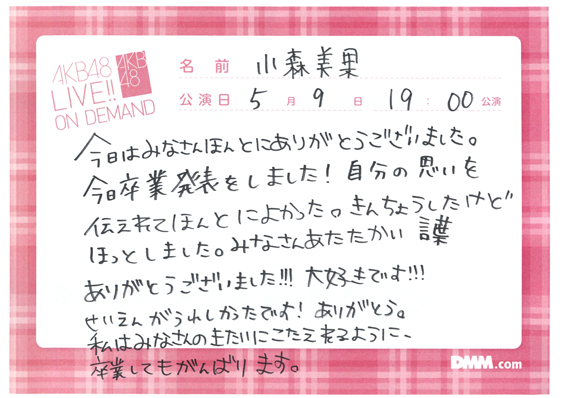 AKB48
LIVE!!
ON DEMAND
AKB
48
名前 小森美果
公演日 5月9日 19:00公演
今日はみなさんほんとにありがとうございました。
今日卒業発表をしました!自分の思いを
伝えれてほんとによかった。きんちょうしたけど
ほっとしました。みなさんあたたかい
ありがとうございました!!! 大好きです!!!
せいえんがうれしかったです!ありがとう。
私はみなさんのきたいにこたえれるように、
卒業してもがんばります。
DMM.com